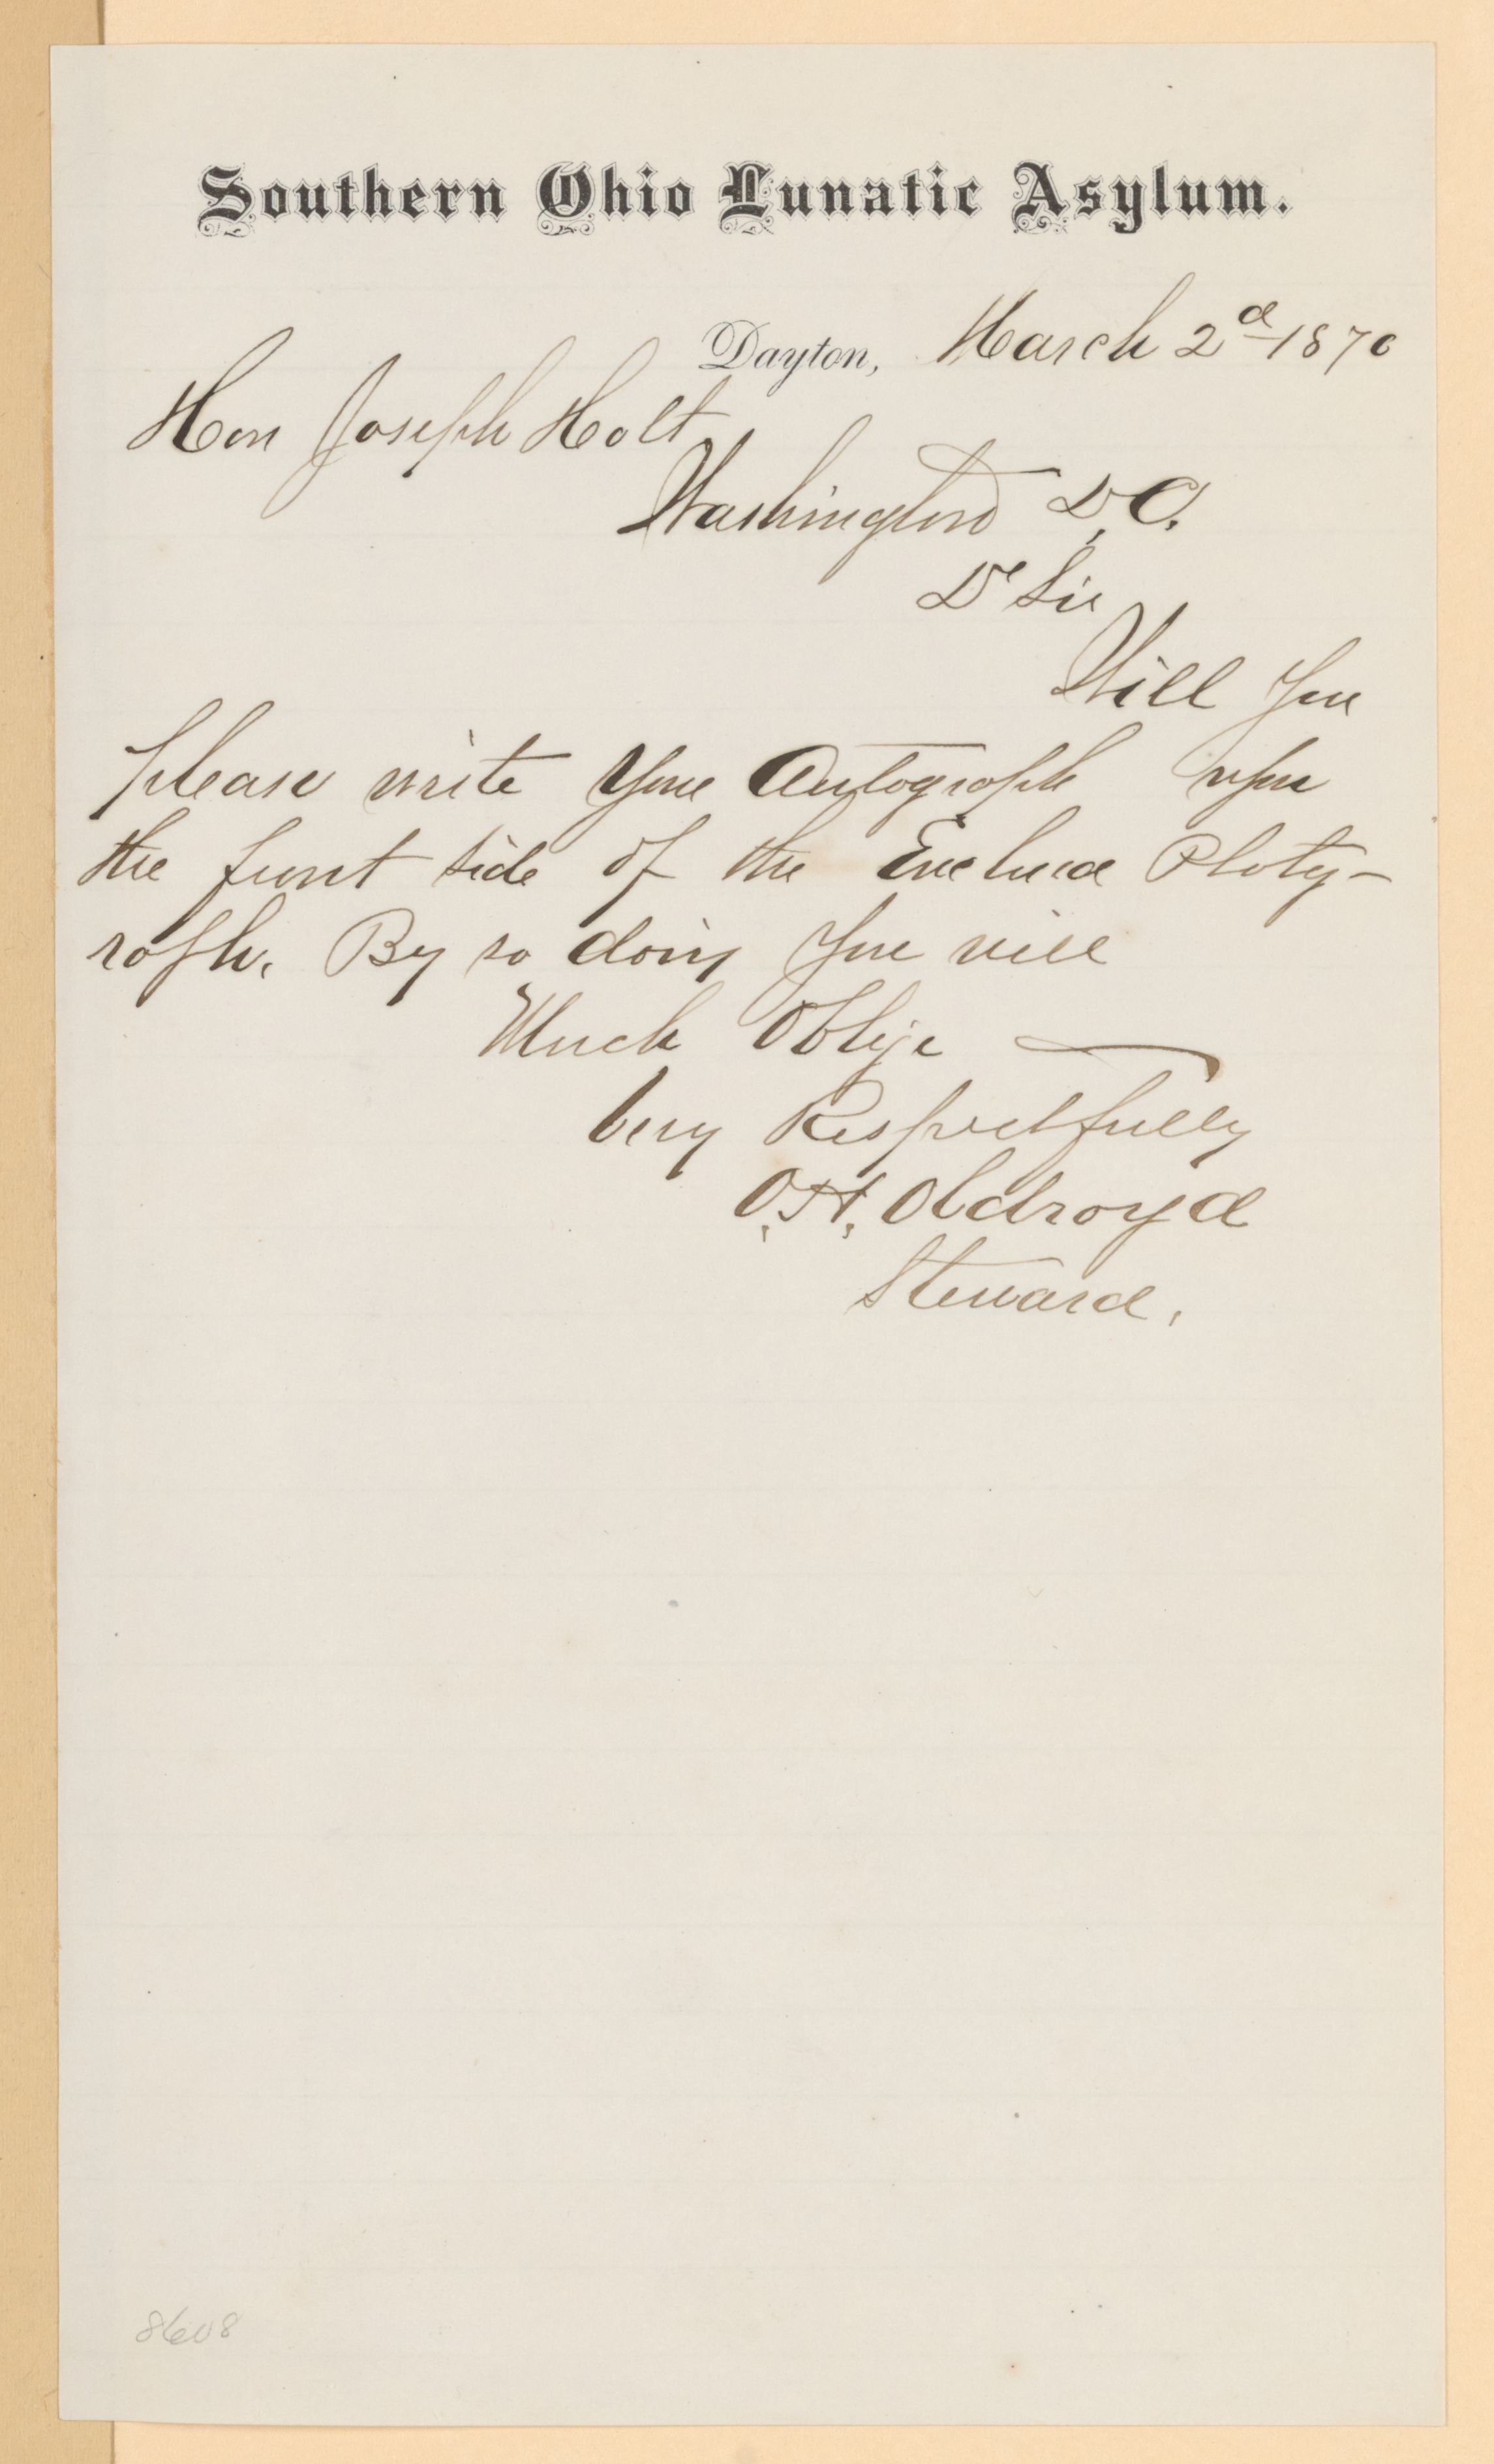 Southern Ohio Lunatic Asylum.
Dayton, March 2d 1870
Hon Joseph Holt
Washington D.C.
Dr Sir
Will you
please write your Autograph upon
the front side of the Enclosed Photog-
raph. By so doing you will
Much Oblige
Very Respectfully
O.H. Oldroyd
Steward.
8608